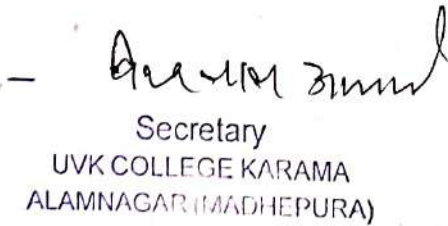 Secretary
UVK COLLEGE KARAMA
ALAMNAGAR (MADHEPURA)